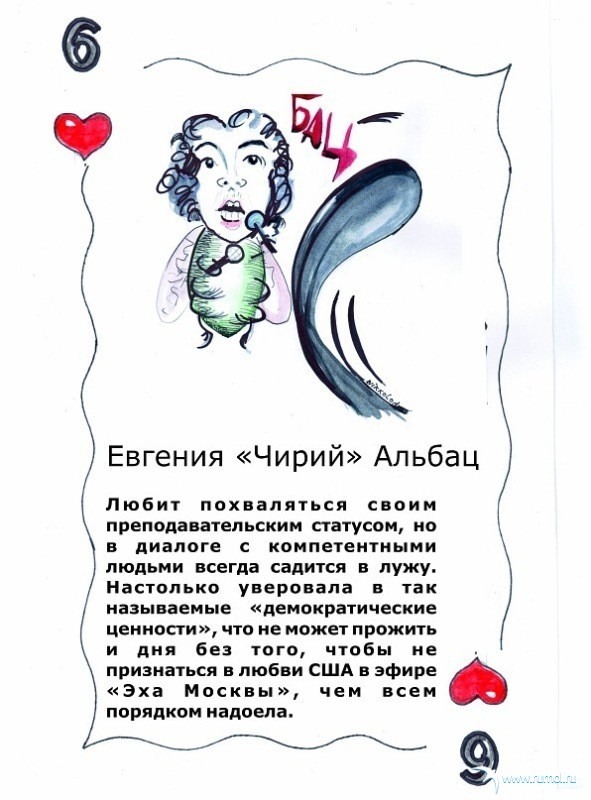 6
БАЦ
Евгения «Чирий» Альбац
Любит похваляться своим
преподавательским статусом, но
в диалоге с компетентными
людьми всегда садится в лужу.
Настолько уверовала в так
называемые «демократические
ценности», что не может прожить
и дня без того, чтобы не
признаться в любви США в эфире
«Эха Москвы», чем всем
порядком надоела.
6
www.rumol.ru